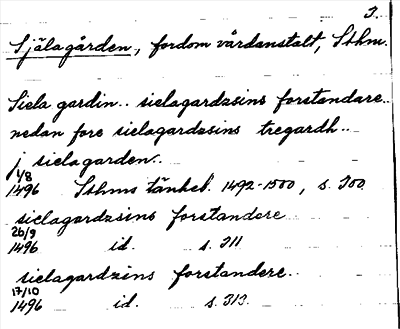 3.
Själagården, fordom vårdanstalt, Sthm.
Siela gardin.. sielagardzsins forstandare..
nedan fore sielagardzsins tregardh..
j sielagarden..
1/8
1496 Sthms tänkeb. 1492-1500, s. 300
sielagardzsins forstandere
26/9
1496 id. s. 311
sielagardzins forstandere..
17/10
1496 id. s. 313.